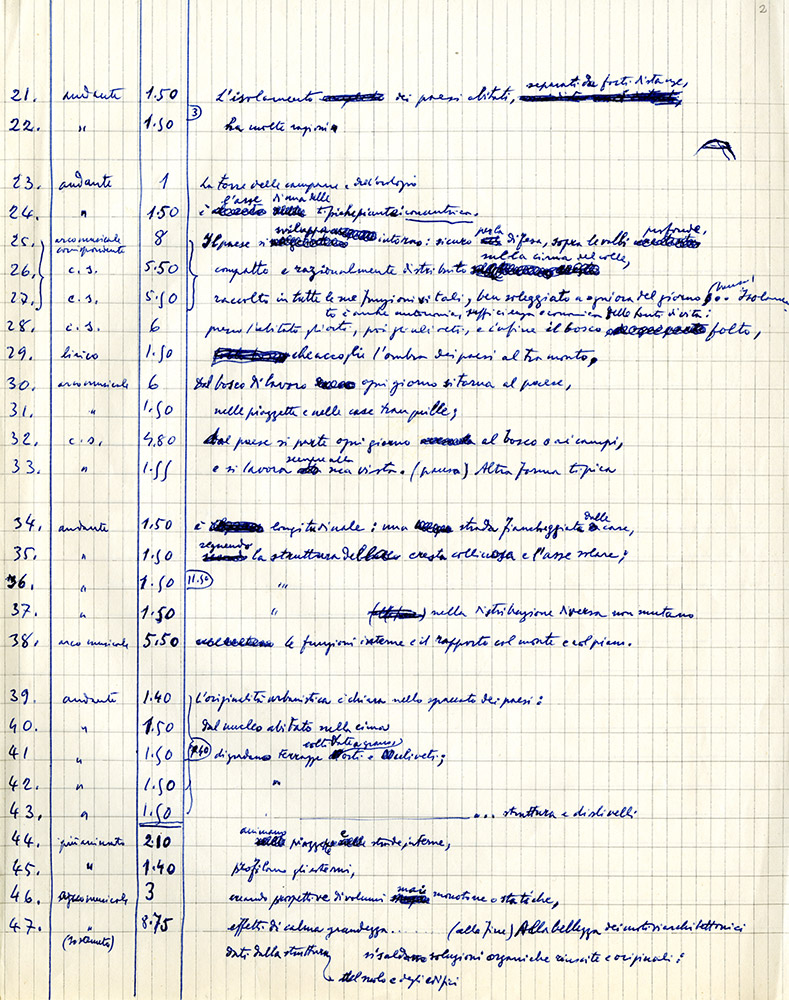 2
21. andante 1.50 L'isolamento dei paesi abitati, separati da forti distanze,
22. " 1.50 ha molte ragioni.
3
23. andante 1 La torre delle campane e dell'orologio
24. " 1.50 è l'asse di una delle tipiche piante concentriche.
25. arco musicale corrispondente 8 Il paese si sviluppa intorno: sicuro per la difesa, sopra le valli profonde,
26. c.s. 5.50 compatto e razionalmente distribuito sulla cima del colle,
27. c.s. 5.50 raccolto in tutte le sue funzioni vitali, ben soleggiato a ogni ora del giorno (pausa) Isolamen
to è anche autonomia, sufficienza economica delle fonti di vita:
28. c.s. 6 presso l'abitato gli orti, poi gli uliveti, e infine il bosco folto,
29. lirico 1.50 che accoglie l'ombra dei paesi al tramonto.
30. arco musicale 6 Dal bosco di lavoro ogni giorno si torna al paese,
31. " 1.50 nelle piazzette e nelle case tranquille;
32. c.s. 4.80 dal paese si parte ogni giorno al bosco o ai campi,
33. " 1.55 e si lavora sempre alla sua vista. (pausa) Altra forma tipica
34. andante 1.50 è longitudinale: una strada fiancheggiata dalle case,
35. " 1.50 seguendo la struttura della cresta collinosa e l'asse solare;
36. " 1.50 11.50 "
37. " 1.50 " nella distribuzione diversa non mutano
38. arco musicale 5.50 le funzioni interne e il rapporto col monte e col piano.
39. andante 1.40 L'originalità urbanistica è chiara nello spaccato dei paesi:
40. " 1.50 dal nucleo abitato sulla cima
41 " 1.50 7.40 digradano terrazze orti e uliveti;
42. " 1.50 "
43. " 1.50 "... struttura e dislivelli
44. più animato 2.10 animano piazzette e strade interne,
45. " 1.40 profilano gli esterni,
46. arco musicale 3 creando prospettive di volumi mai monotone o statiche,
47. " 8.75 effetti di calma grandezza........ (alla fine) Alla bellezza dei motivi architettonici
dati dalla struttura si saldano soluzioni organiche riuscite e originali:
del suolo e degli edifici